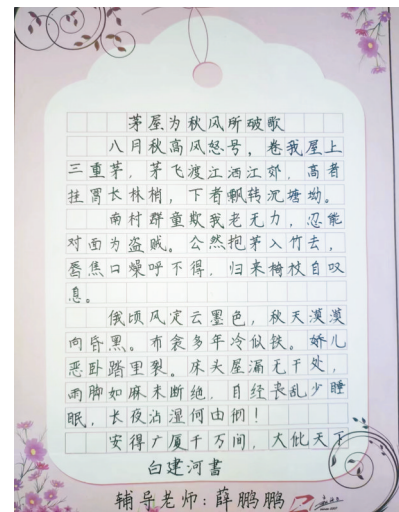 茅屋为秋风所破歌
八月秋高风怒号，卷我屋上
三重茅，茅飞渡江洒江郊，高者
挂罥长林梢，下者飘转沉塘坳。
南村群童欺我老无力，忍能
对面为盗贼。公然抱茅入竹去，
唇焦口燥呼不得，归来椅杖自叹
息。
俄顷风定云墨色，秋天漠漠
向昏黑。布衾多年冷似铁。娇儿
恶卧踏里裂。床头屋漏无干处，
雨脚如麻未断绝，自经丧乱少睡
眠，长夜沾湿何由彻！
安得广厦千万间，大庇天下
白建河書
辅导老师：薛鹏鹏